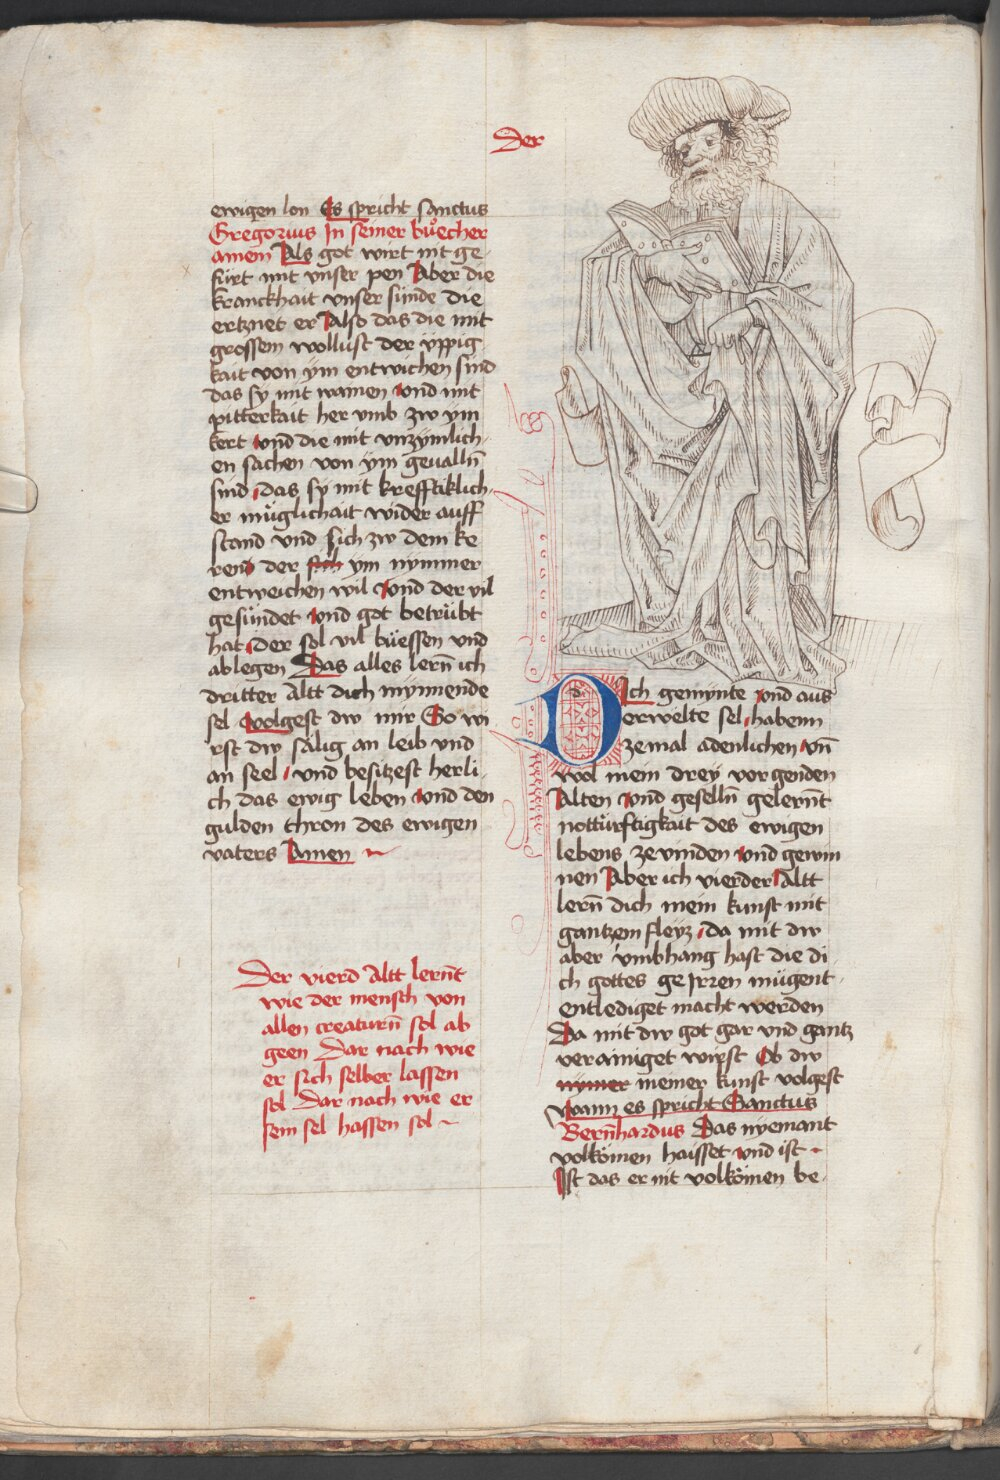 Der
ewigen lon Es spricht sanctus
Gregorius In seiner buͦecher
amen Als got wirt nit ge-
fürt mit vnser pen Aber die
kranckhait vnser sünde die
ertznet er Also das die mit
grossem wollust der ÿppig
kait von ÿm entwichen sind
das sÿ mit wainen vnd mit
pitterkait her vmb zw ÿm
kert vnd die mit vnzÿmlich-
en sachen von ÿm geualln̄
sind das sÿ mit krefftiklich-
er müglichait wider auff
stand vnd sich zw dem ke
ren der sich ÿm nÿmmer
entweichen wil vnd der vil
gesündet vnd got betrübt
hat der sol vil büessen vnd
ablegen Das alles lern̄ ich
dritter altt dich mÿnnende
sel volgest dw mir So wi
rst dw sälig an leib vnd
an seel vnd besitzest herli-
ch das ewig leben vnd den
gulden thron des ewigen
vaters Amen ~
Der vierd Altt lern̄t
wie der mensch von
allen creaturn̄ sol ab
geen Dar nach wie
er sich selber lassen
sol Dar nach wie er
sein sel hassen sol ~
Dich gemÿnte vnd aus
erwelte sel habenn
zemal adenlichen vn̄
wol mein dreÿ vorgenden
Alten vnd geselln̄ gelern̄t
nottürftigkait des ewigen
lebens zevinden vnd gewin
nen Aber ich vierder Altt
lern̄ dich mein kunst mit
gantzem fleÿz da mit dw
aber vmbhang hast die di
ch gottes ge Jrren mügent
entlediget macht werden
Da mit dw got gar vnd gantz
verainiget wirst Ob dw
nÿmer meiner kunst volgest
wann es spricht Sanctus
Bern̄hardus Das nÿemant
volkömen haisset vnd ist ~
Ist das er nit volkömen be-